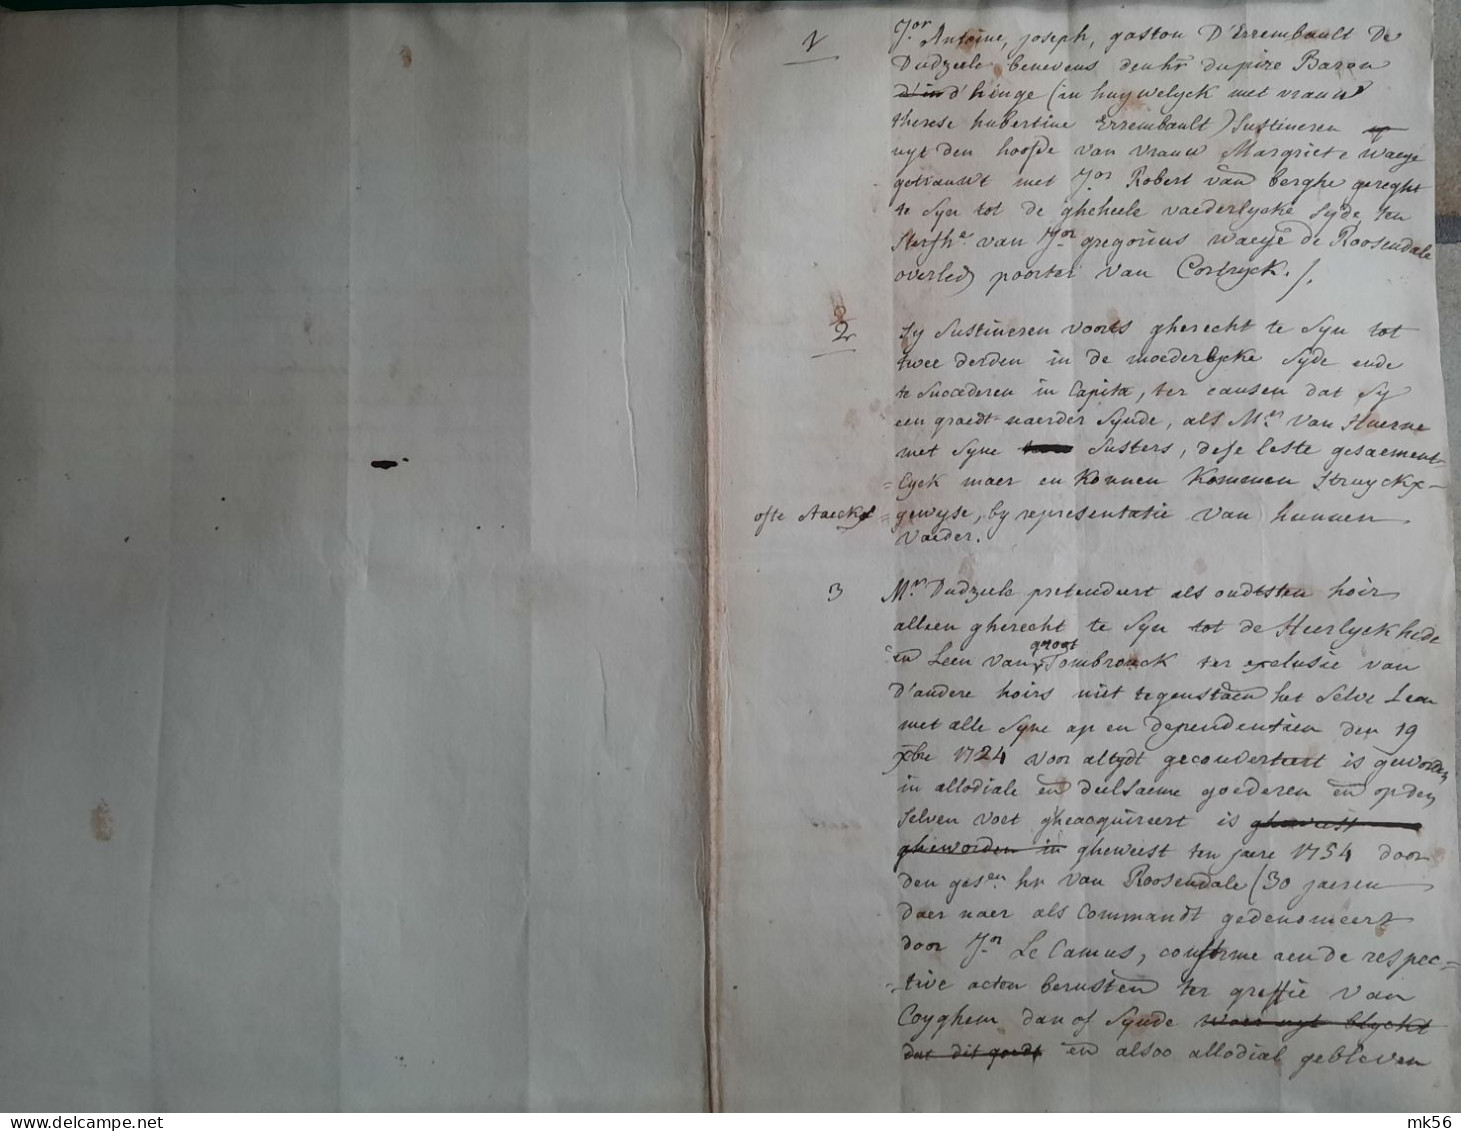 1
Jor Antoine, joseph, gaston D'Errembault De
Dudzeele benevens den hr dupire Baron
d'in d'hinge (in huywelyck met vrauw
therese hubertine Errembault) sustineren op
uyt den hoofde van vrauw Margriete waeye
getrauwt met Jor Robert van berghe gereght
te Syn tot de gheheele vaederlycke Syde ten
Sterfhe van Jor gregorius waeye de Roosendale
overled poorter van Cortryck ./.
2
Sy Sustineren voorts gherecht te Syn tot
twee derden in de moederlycke Syde ende
te Succederen in Capita, ter causen dat Sy
een graedt naerder Synde, als Mr. Van Huerne
met Syne Susters, dese leste gesaement-
=lyck maer en konnen kommen Struyckx-
ofte Staeckx =gewyse, by representatie van hunnen
vaeder.
3
Mr Dudzeele pretendeert als oudtsten hoir
alleen gherecht te Syn tot de Heerlyckhede
en Leen van groot Tombrouck ter exclusie van
D'andere hoirs niet tegenstaen het Selve Leen
met alle Syne ap en dependentien den 19
xbre 1724 voor altydt geconverteert is geworden
in allodiale en deelsaeme goederen en op den
Selven voet gheacquireert is gheweest
gheworden in gheweest ten jaere 1754 door
den gesen. hr van Roosendale (30 jaeren
daer naer als Commandt gedenomeert
door Jor Le Camus, conforme aen de respec=
=tive acten berusten ter greffie van
Coyghem dan of Synde voor uyt blyckt
dat dit goedt en alsoo allodial gebleven
mk56